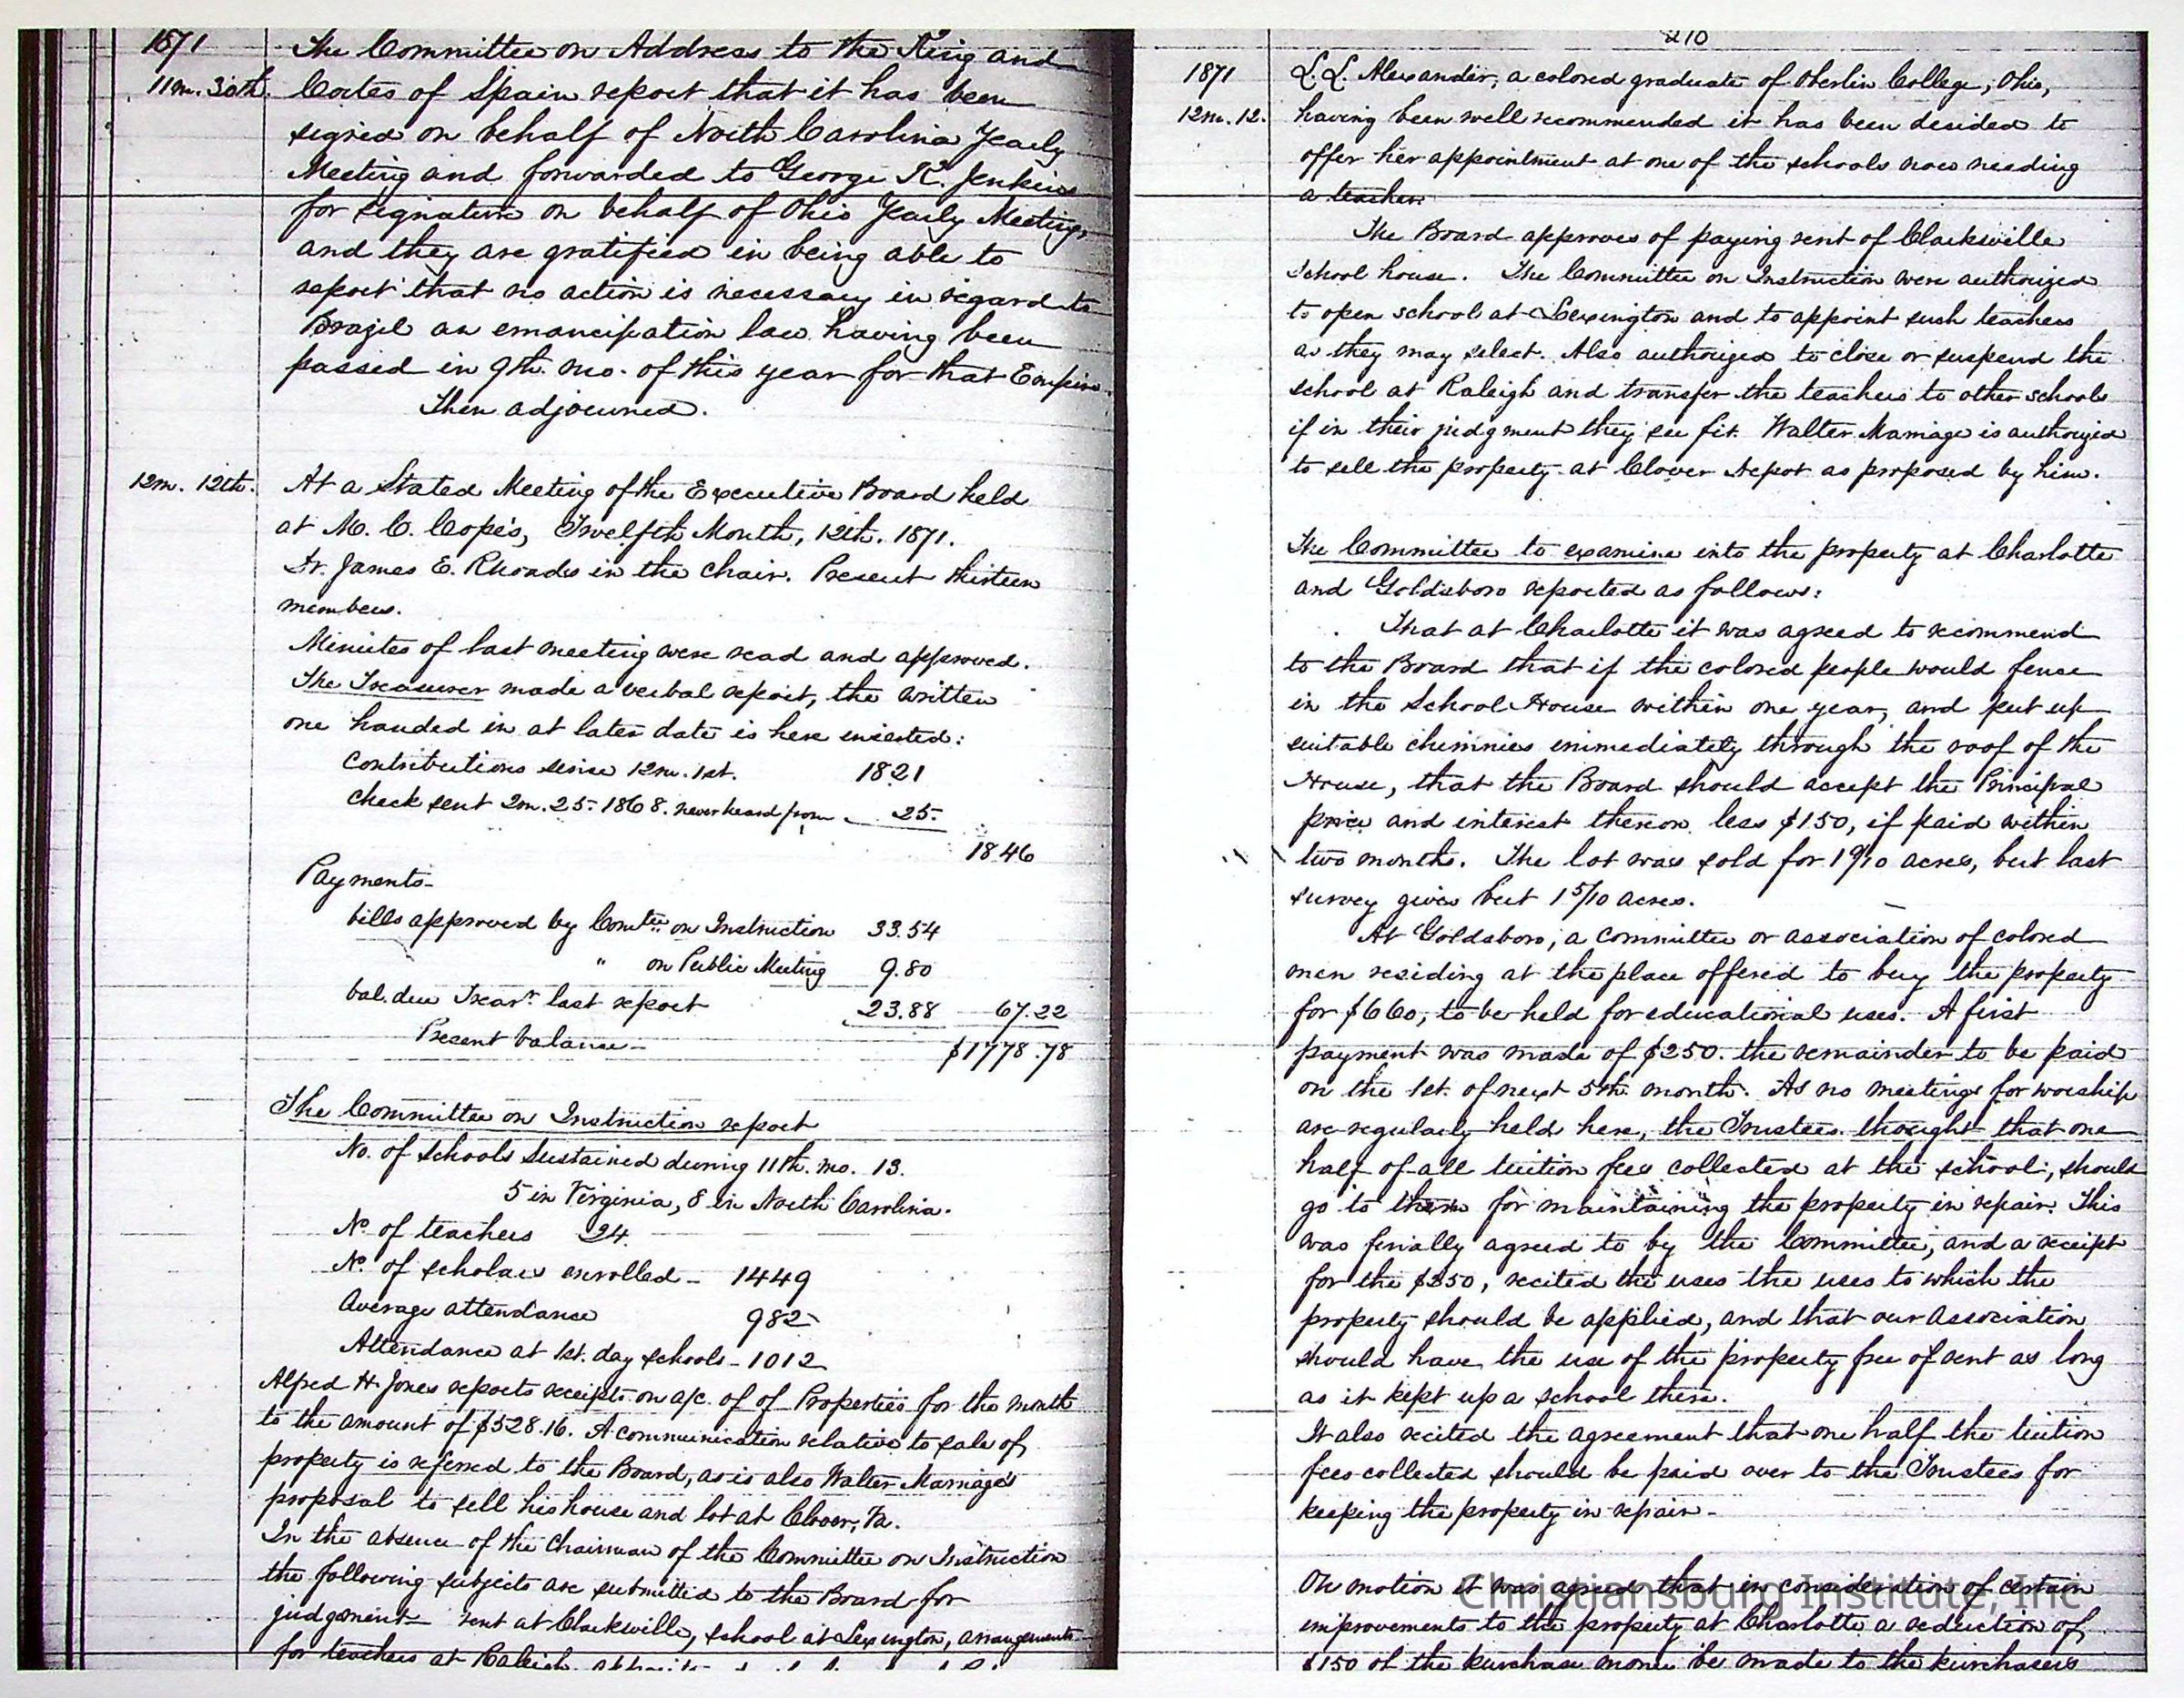 1871
11m. 30th.
The Committee on Address to the King and
Cortes of Spain report that it has been
signed on behalf of North Carolina Yearly
Meeting and forwarded to George K. Jenkins
for signature on behalf of Ohio Yearly Meeting,
and they are gratified in being able to
report that no action is necessary in regard to
Brazil an emancipation law having been
passed in 9th. mo. of this year for that Empire.
Then adjourned.
12m. 12th.
At a Stated Meeting of the Executive Board held
at M. C. Cope's, Twelfth Month, 12th. 1871.
Dr. James E. Rhoads in the chair. Present thirteen
members.
Minutes of last meeting were read and approved.
The Treasurer made a verbal report, the written
one handed in at later date is here inserted:
Contributions since 12m. 1st. 1821
Check sent 2m. 25. 1868. never heard from 25.
1846
Payments-
bills approved by Comtee. on Instruction 33.54
" on Public Meeting 9.80
bal. due Treasr. last report 23.88 67.22
Present balance $1778.78
The Committee on Instruction report
No. of schools sustained during 11th. mo. 13.
5 in Virginia, 8 in North Carolina.
No. of teachers 24.
No. of scholars enrolled - 1449
Average attendance 982
Attendance at 1st. day schools - 1012
Alfred H. Jones reports receipts on a/c. of of Properties for the month
to the amount of $528.16. A communication relative to sale of
property is referred to the Board, as is also Walter Marriage's
proposal to sell his house and lot at Clover, Va.
In the absence of the Chairman of the Committee on Instruction
the following subjects are submitted to the Board for
judgment - rent at Clarksville, school at Lexington, arrangements
for teachers at Raleigh,
210
1871
12m. 12.
L. L. Alexander, a colored graduate of Oberlin College, Ohio,
having been well recommended it has been decided to
offer her appointment at one of the schools now needing
a teacher.
The Board approves of paying rent of Clarksville
School house. The Committee on Instruction were authorized
to open school at Lexington and to appoint such teachers
as they may select. Also authorized to close or suspend the
school at Raleigh and transfer the teachers to other schools
if in their judgment they see fit. Walter Marriage is authorized
to sell the property at Clover Depot as proposed by him.
The Committee to examine into the property at Charlotte
and Goldsboro reported as follows:
That at Charlotte it was agreed to recommend
to the Board that if the colored people would fence
in the School House within one year, and put up
suitable chimnies immediately through the roof of the
House, that the Board should accept the Principal
price and interest thereon less $150, if paid within
two months. The lot was sold for 1 9/10 acres, but last
survey gives but 1 5/10 acres.
At Goldsboro, a committee or association of colored
men residing at the place offered to buy the property
for $660, to be held for educational uses. A first
payment was made of $250. the remainder to be paid
on the 1st. of next 5th. month. As no meetings for worship
are regularly held here, the Trustees thought that one
half of all tuition fees collected at the school, should
go to them for maintaining the property in repair. This
was finally agreed to by the Committee, and a receipt
for the $250, recited the uses the uses to which the
property should be applied, and that our Association
should have the use of the property free of rent as long
as it kept up a school there.
It also recited the agreement that one half the tuition
fees collected should be paid over to the Trustees for
keeping the property in repair-
On motion it was agreed that in consideration of certain
improvements to the property at Charlotte a reduction of
$150 of the purchase money be made to the purchasers
Christiansburg Institute, Inc